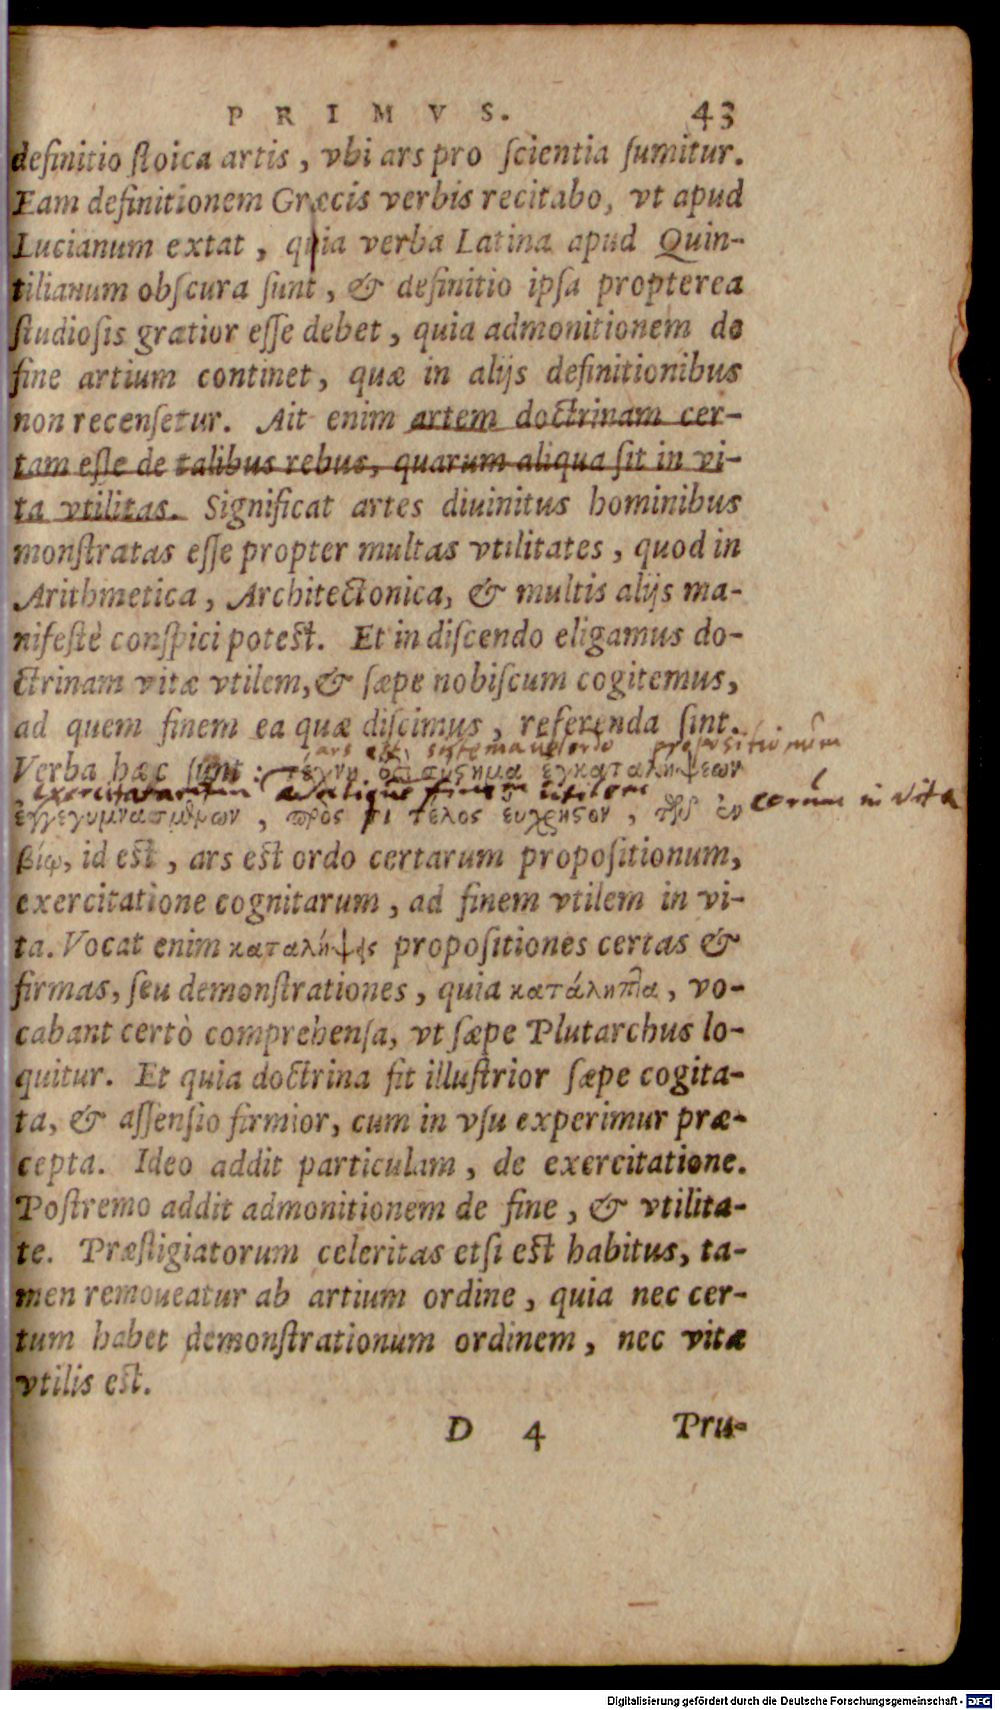 PRIMVS. 43
definitio stoica artis, vbi ars pro scientia sumitur.
Eam definitionem Græcis verbis recitabo, vt apud
Lucianum extat, quia verba Latina apud Quin-
tilianum obscura sunt, & definitio ipsa propterea
studiosis gratior esse debet, quia admonitionem de
fine artium continet, quæ in alijs definitionibus
non recensetur. Ait enim artem doctrinam cer-
tam esse de talibus rebus, quarum aliqua sit in vi-
ta vtilitas. Significat artes diuinitus hominibus
monstratas esse propter multas vtilitates, quod in
Arithmetica, Architectonica, & multis alijs ma-
nifestè conspici potest. Et in discendo eligamus do-
ctrinam vitæ vtilem, & sæpe nobiscum cogitemus,
ad quem finem ea quæ discimus, referenda sint.
ars est sistema vel ordo propositionum
Verba hæc sunt: τέχνη ὅτι σύςημα ἐγκαταλήψεων
exercitatarum finem utilem
ἐγγεγυμνασμένων, πρός τι τέλος εὔχρηςον, τῶν ἐν
eorum in vita
βίῳ, id est, ars est ordo certarum propositionum,
exercitatione cognitarum, ad finem vtilem in vi-
ta. Vocat enim καταλήψεις propositiones certas &
firmas, seu demonstrationes, quia κατάληπτα, vo-
cabant certò comprehensa, vt sæpe Plutarchus lo-
quitur. Et quia doctrina fit illustrior sæpe cogita-
ta, & assensio firmior, cum in vsu experimur præ-
cepta. Ideo addit particulam, de exercitatione.
Postremo addit admonitionem de fine, & vtilita-
te. Præstigiatorum celeritas etsi est habitus, ta-
men remoueatur ab artium ordine, quia nec cer-
tum habet demonstrationum ordinem, nec vitæ
vtilis est.
D 4 Pru-
Digitalisierung gefördert durch die Deutsche Forschungsgemeinschaft - DFG